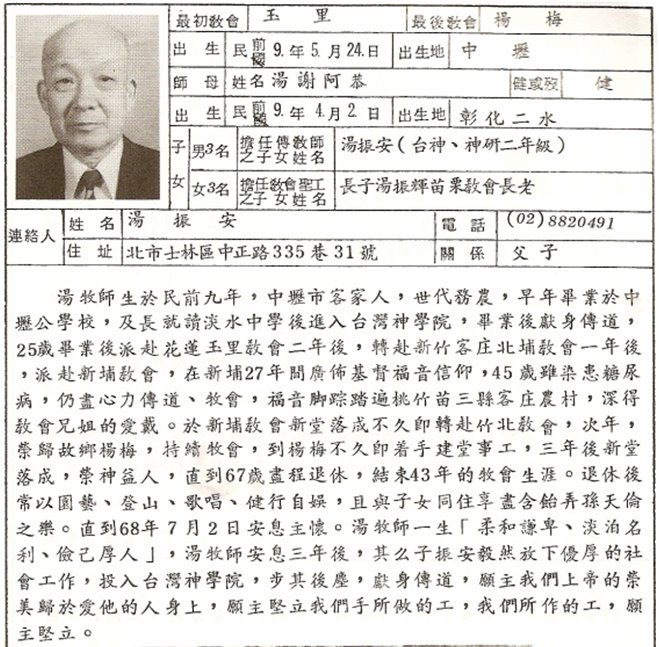 最初教會 玉里 最後教會 楊梅
出生 民前國 9.年5.月24.日 出生地 中壢
師母 姓名 湯謝阿恭 健或歿 健
出生 民前國 9.年4.月2.日 出生地 彰化二水
子女 男3名 擔任傳教師之子女姓名 湯振安(台神、神研二年級)
女3名 擔任教會聖工之子女姓名 長子湯振輝苗栗教會長老
連絡人 姓名 湯振安 電話 (02)8820491
住址 北市士林區中正路335巷31號 關係 父子
湯牧師生於民前九年,中壢市客家人,世代務農,早年畢業於中
壢公學校,及長就讀淡水中學後進入台灣神學院,畢業後獻身傳道,
25歲畢業後派赴花蓮玉里教會二年後,轉赴新竹客庄北埔教會一年後
,派赴新埔教會,在新埔27年間廣佈基督福音信仰,45歲雖染患糖尿
病,仍盡心力傳道、牧會,福音脚踪踏遍桃竹苗三縣客庄農村,深得
教會兄姐的愛戴。於新埔教會新堂落成不久卽轉赴竹北教會,次年,
榮歸故鄉楊梅,持續牧會,到楊梅不久卽着手建堂事工,三年後新堂
落成,榮神益人,直到67歲盡程退休,結束43年的牧會生涯。退休後
常以園藝、登山、歌唱、健行自娛,且與子女同住享盡含飴弄孫天倫
之樂。直到68年7月2日安息主懷。湯牧師一生「柔和謙卑、淡泊名
利、儉己厚人」,湯牧師安息三年後,其么子振安毅然放下優厚的社
會工作,投入台灣神學院,步其後塵,獻身傳道,願主我們上帝的榮
美歸於愛他的人身上,願主堅立我們手所做的工,我們所作的工,願
主堅立。